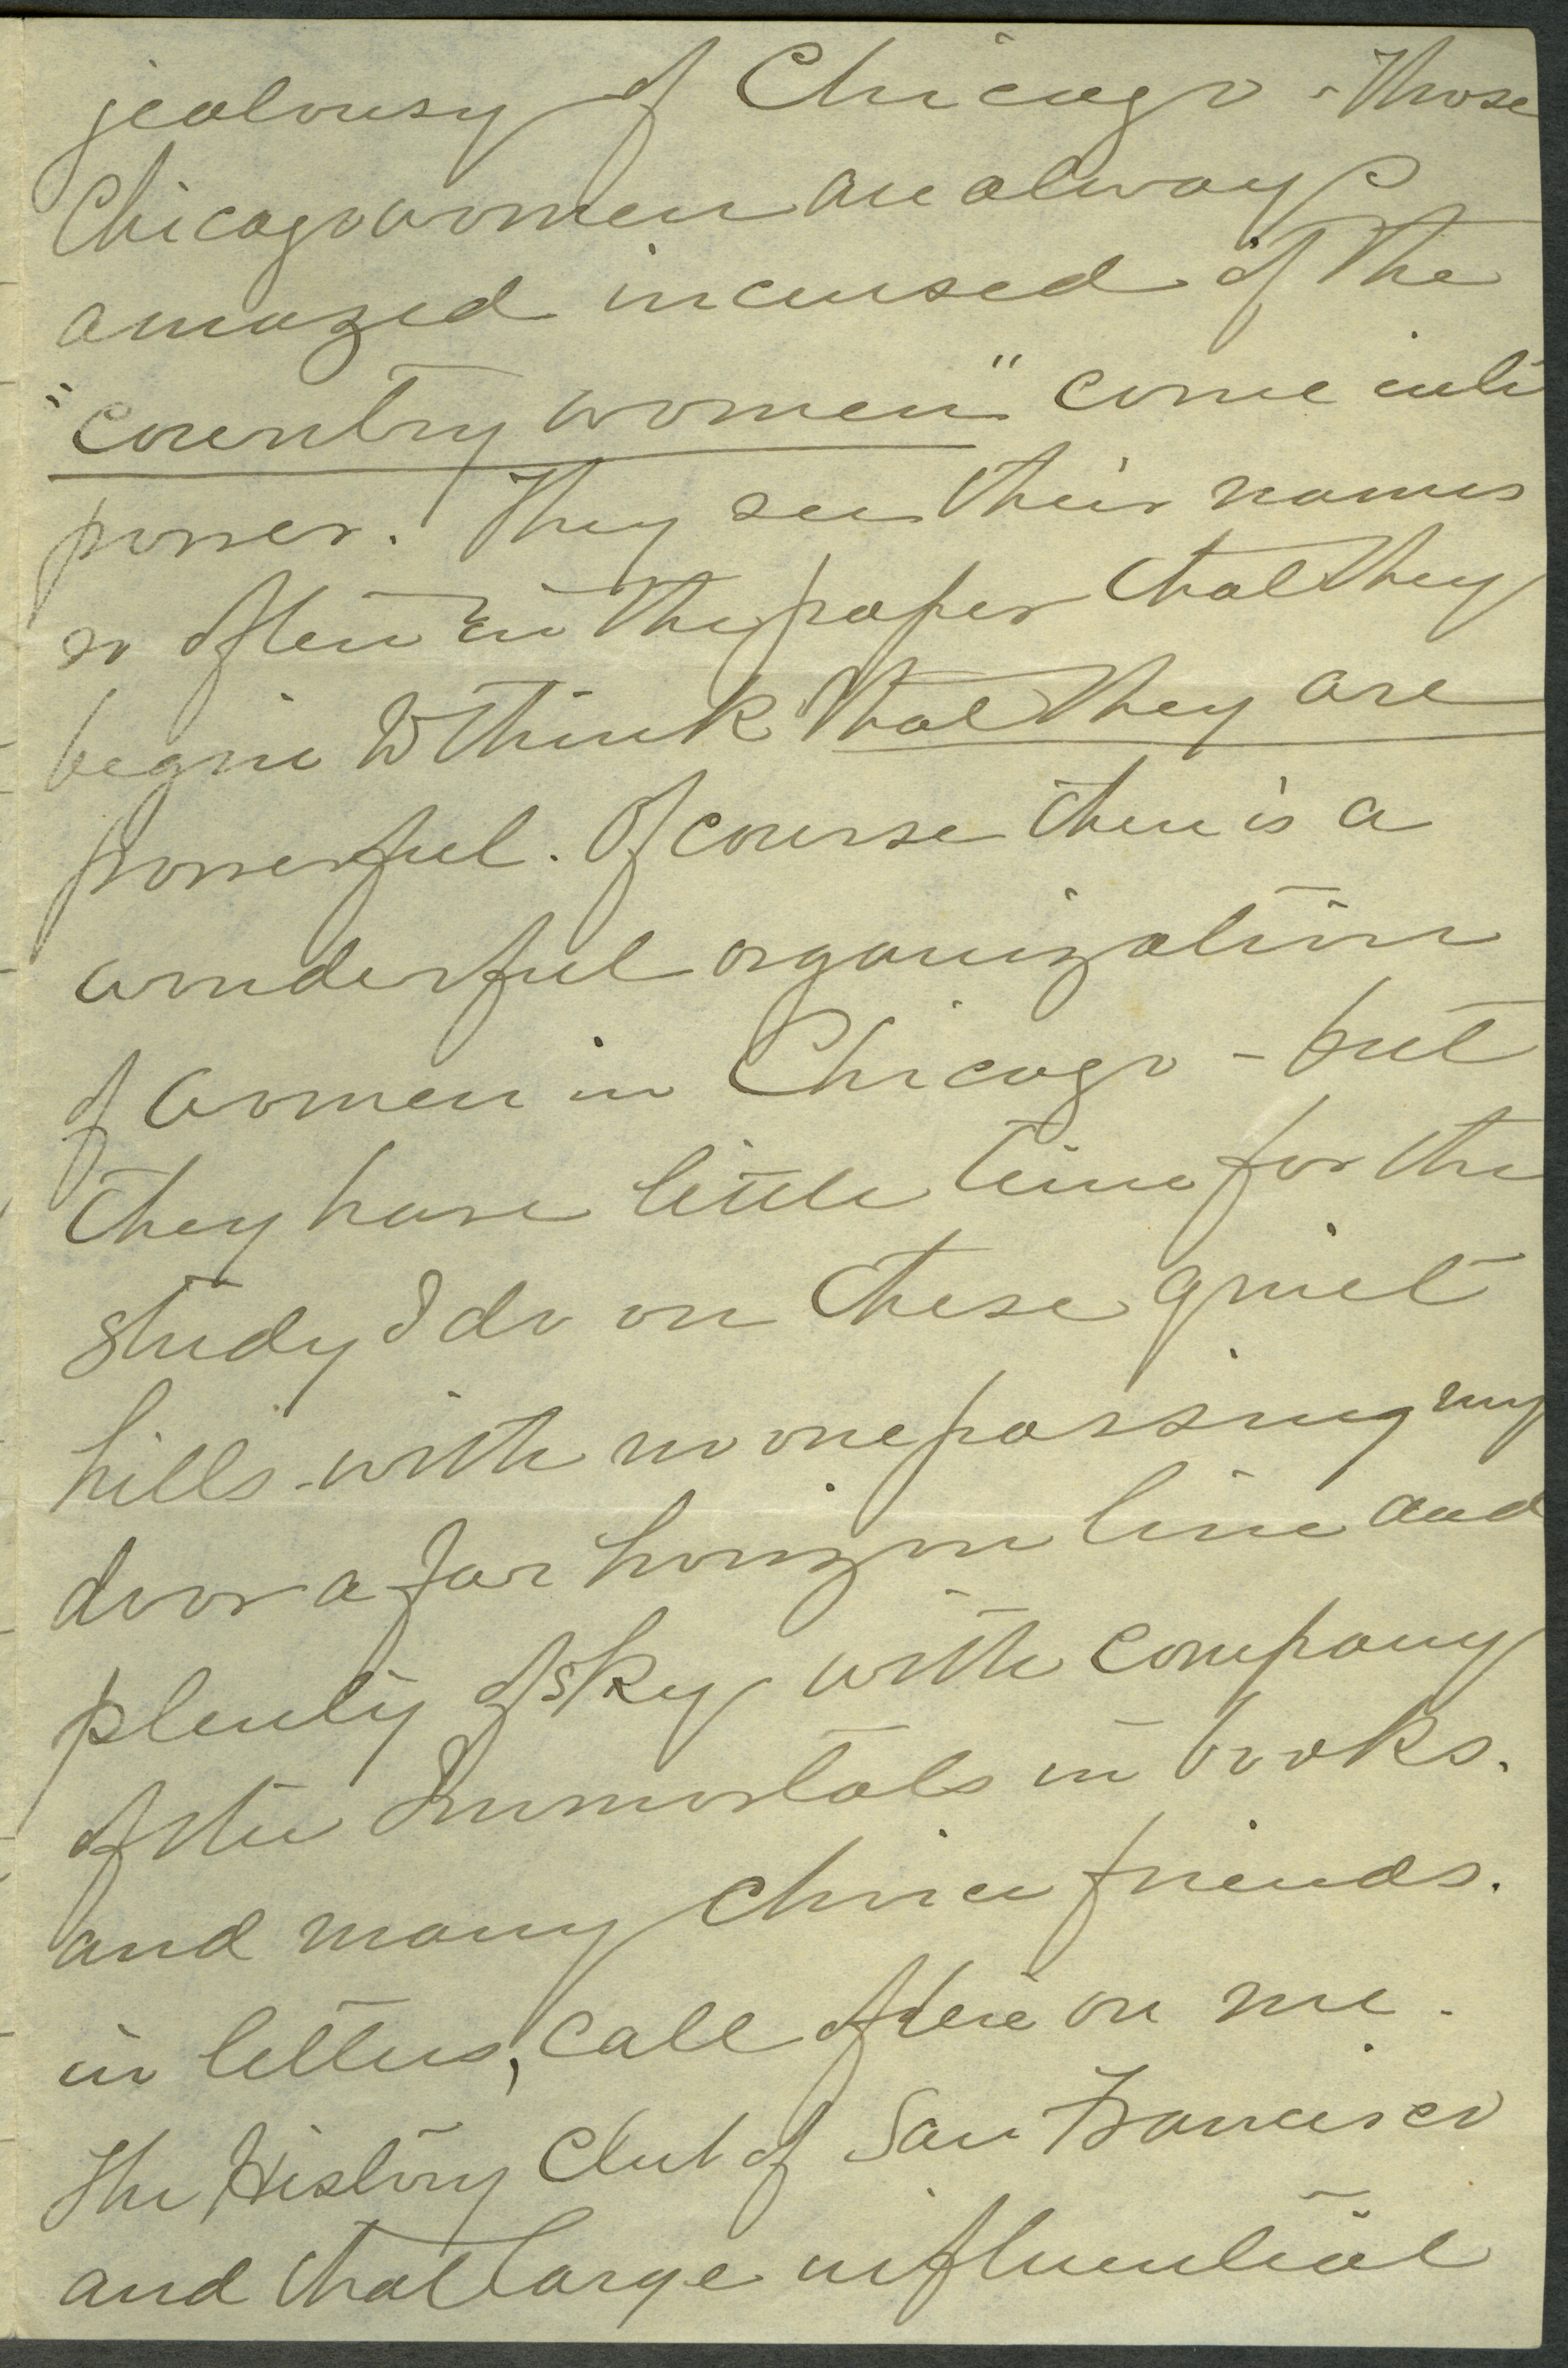 jealousy of Chicago - Those
Chicago women are always
amazed incensed if the
"country women" come into
power. They see their names
so often in the paper that they
begin to think that they are
powerful. Of course there is a
wonderful organization
of women in Chicago - but
they have little time for the
study I do on these quiet
hills - with no one passing my
door a far horizon line and
plenty of sky with company
of the Immortals in books.
and many choice friends.
in letters, call often on me.
The History Club of San Francisco
and that large influential